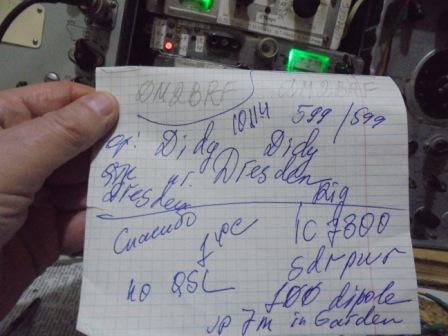 DM2BRF DM2BRF
599/599
op: Didy Didy
qt. Dresden
Dresden
Rig
Спасибо IC 7800
QSO sdr pwr
no QSL 100 dipole
up 7m in Garden